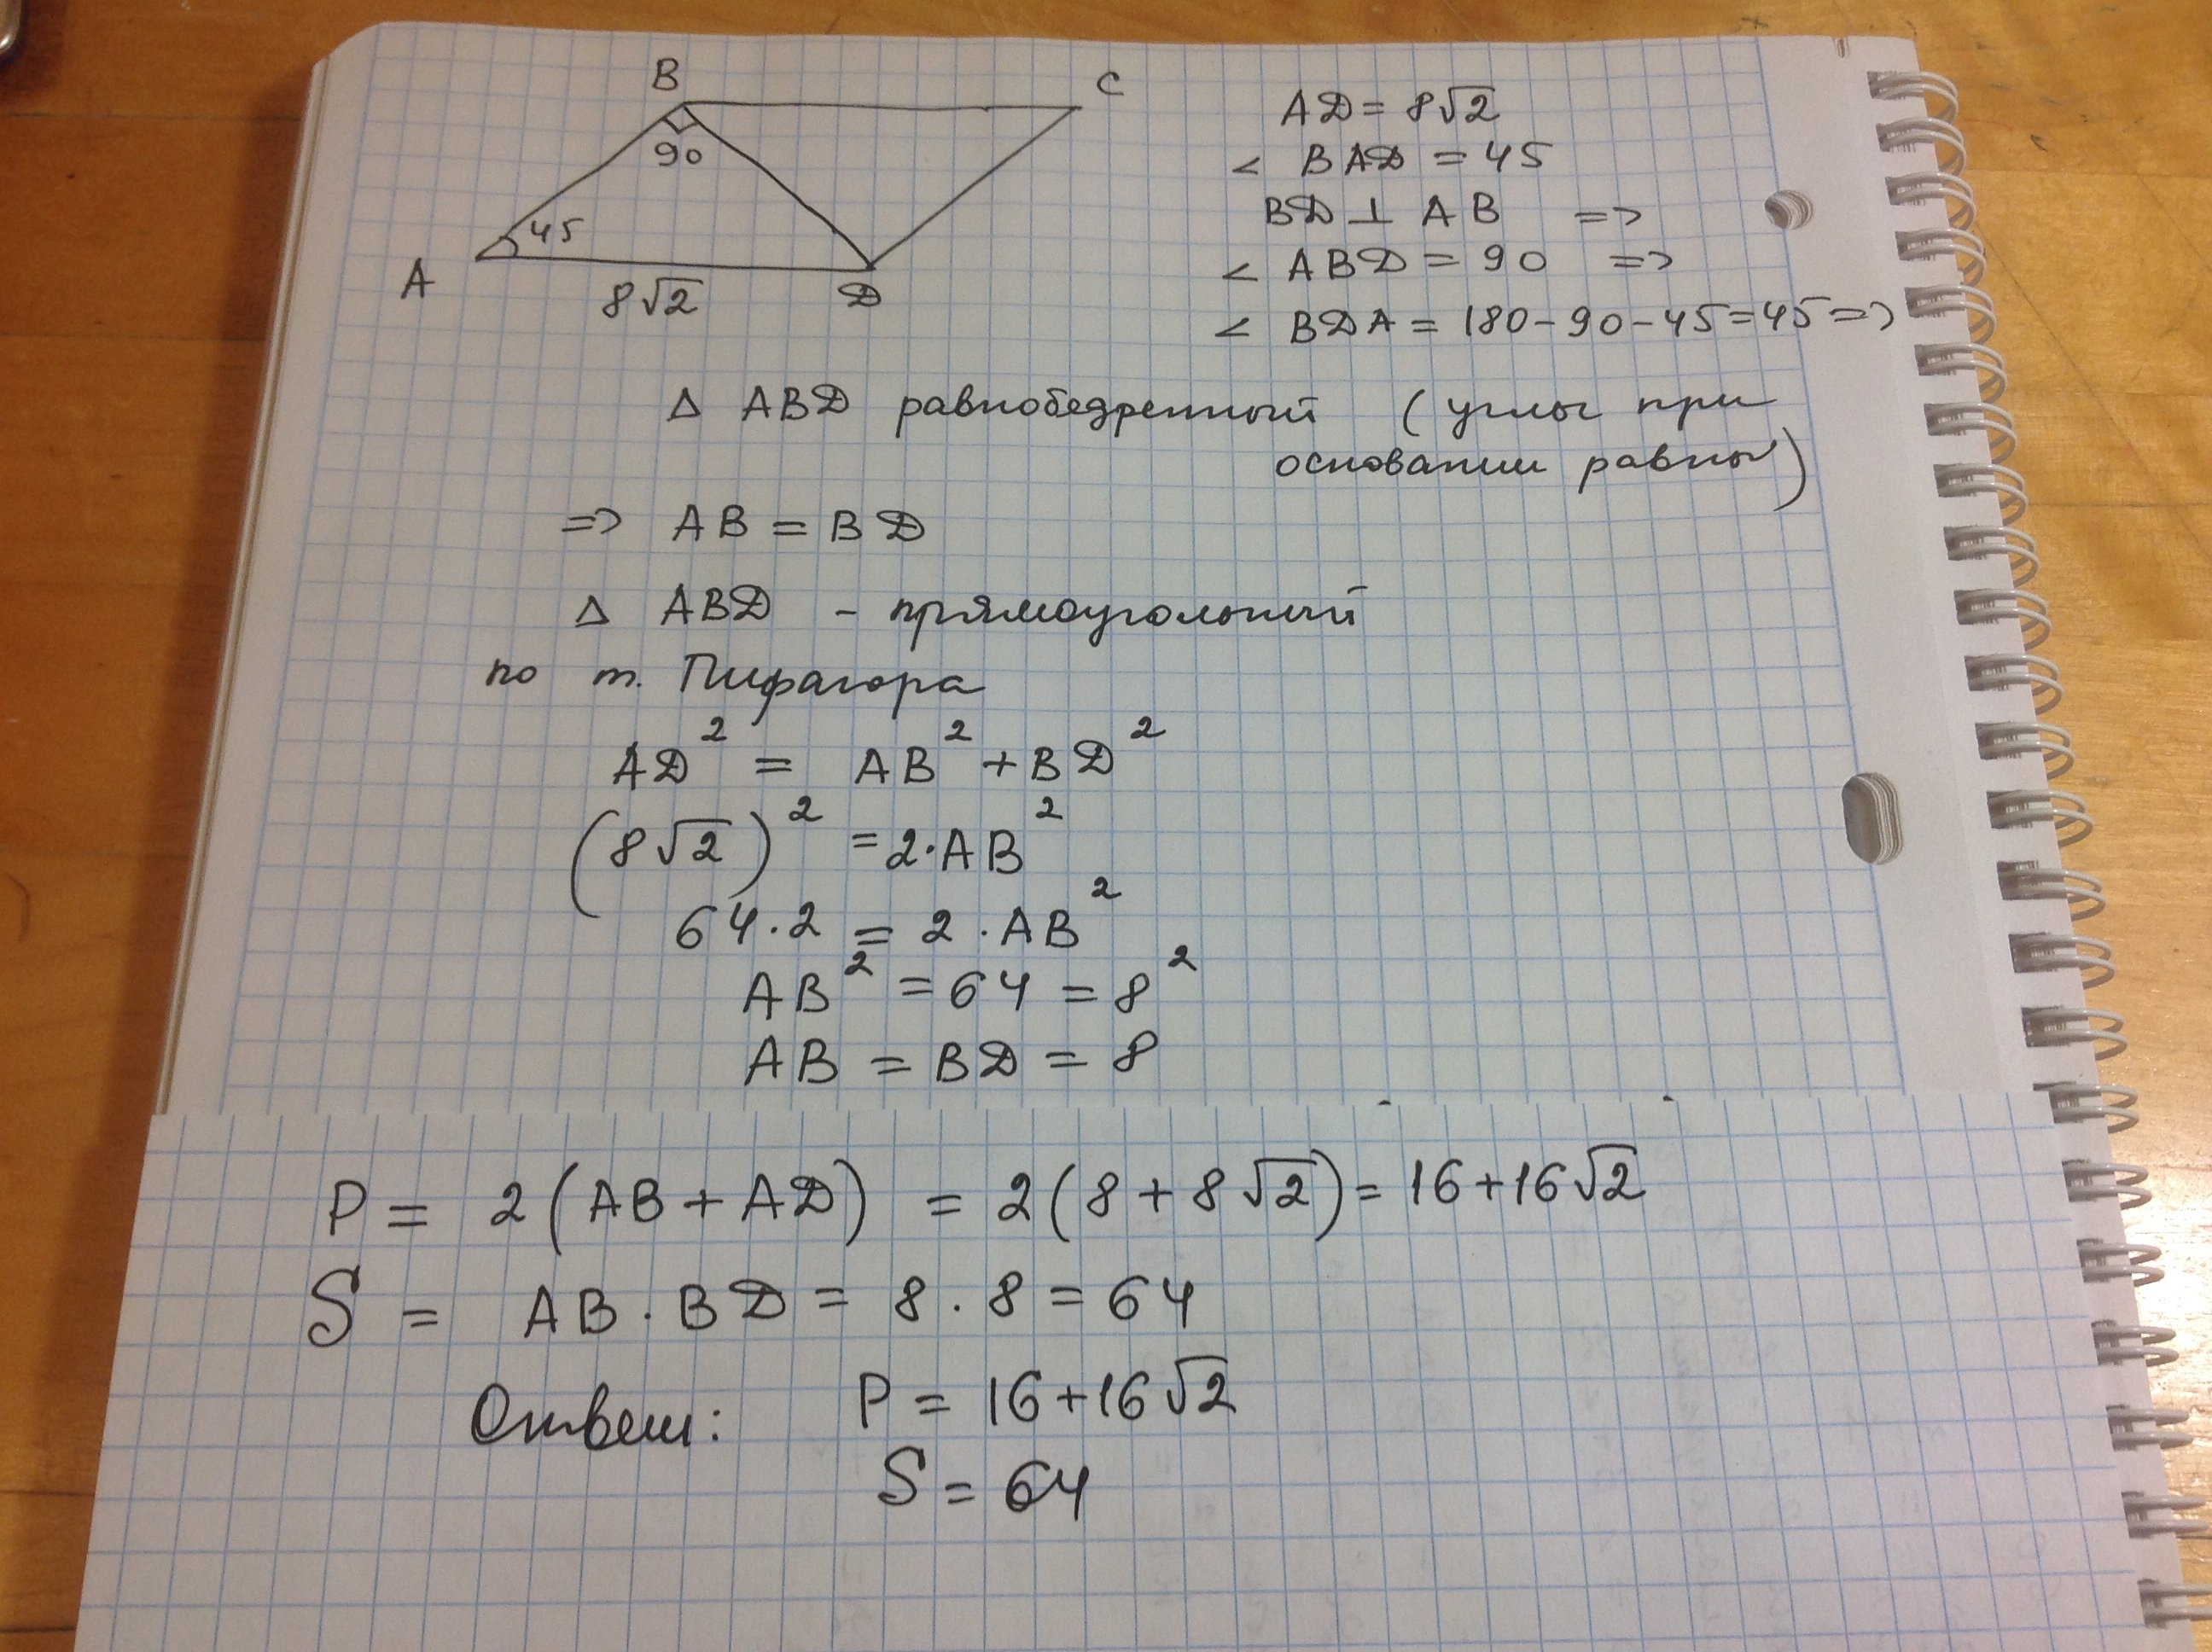 B
C
90
45
A
8√2
D
AD = 8√2
< BAD = 45
BD ⊥ AB =>
< ABD = 90 =>
< BDA = 180 - 90 - 45 = 45 =>
Δ ABD равнобедренный (углы при
основании равны)
=> AB = BD
Δ ABD - прямоугольный
по т. Пифагора
AD² = AB² + BD²
(8√2)² = 2·AB²
64·2 = 2·AB²
AB² = 64 = 8²
AB = BD = 8
P = 2(AB + AD) = 2(8 + 8√2) = 16 + 16√2
S = AB · BD = 8 · 8 = 64
Ответ: P = 16 + 16√2
S = 64